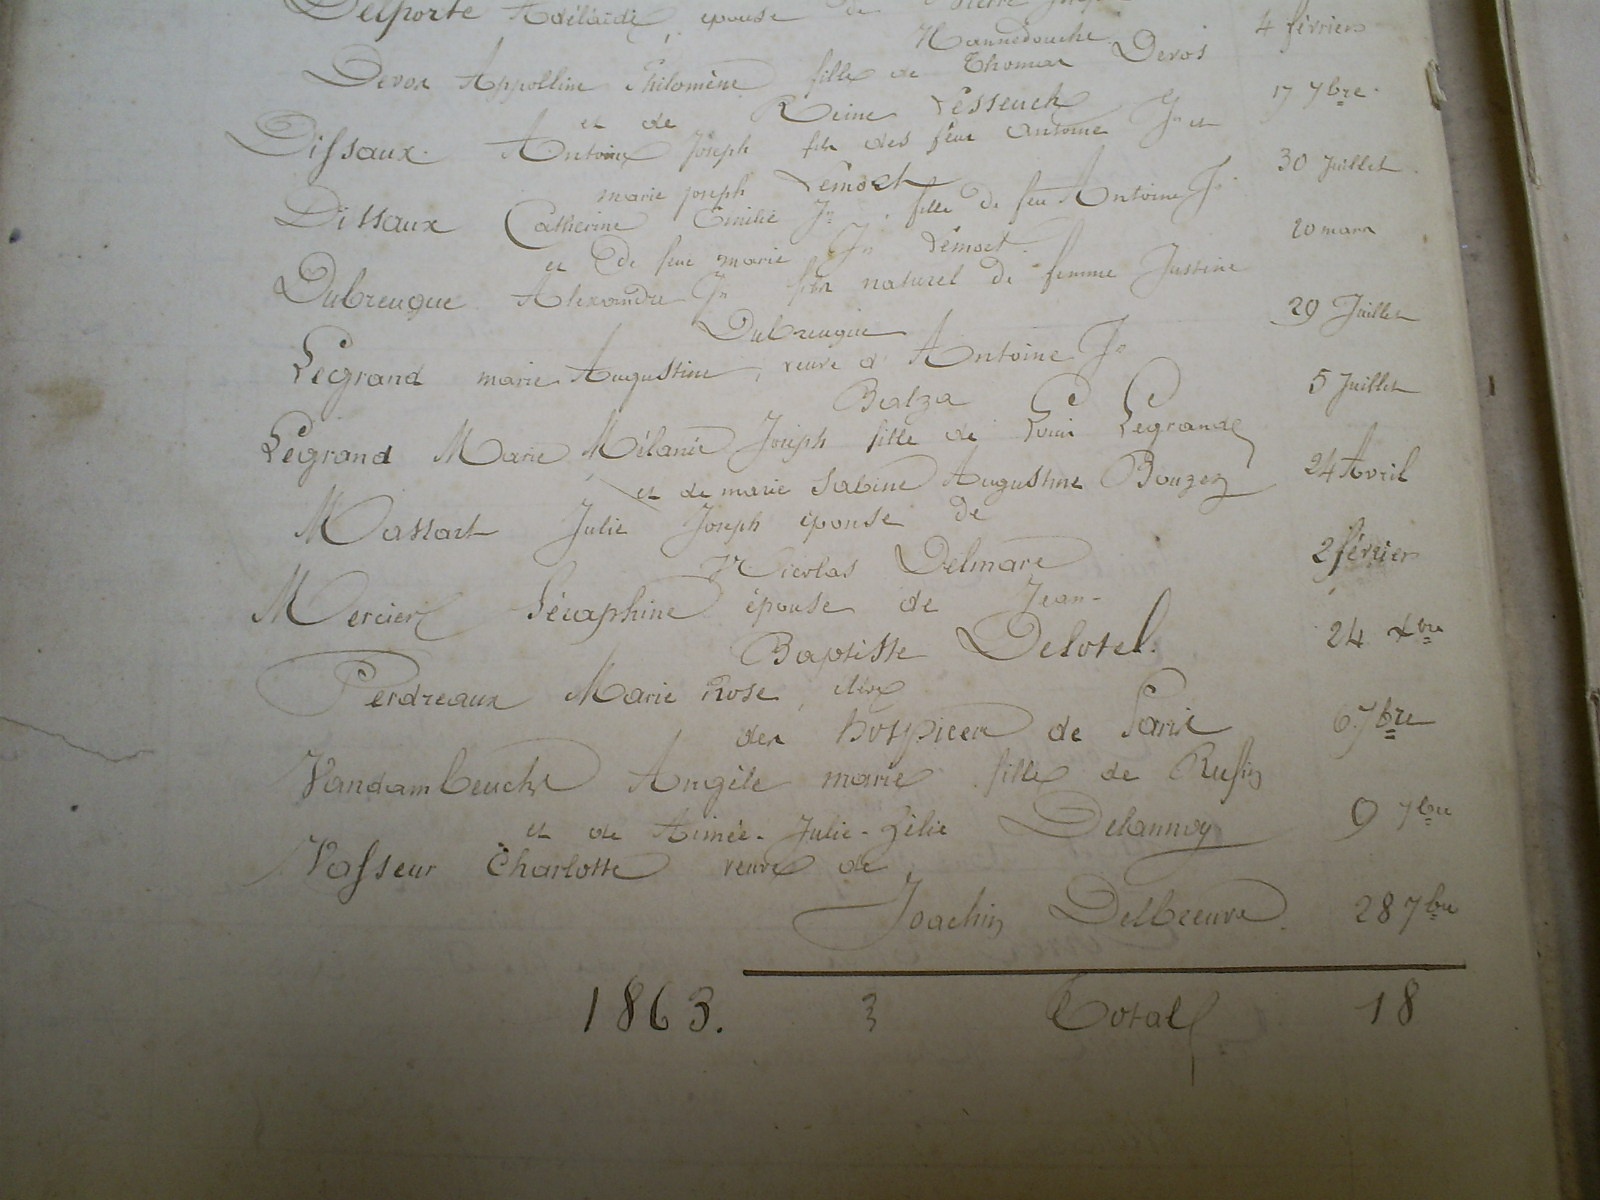 Delporte Adélaïde, épouse de Pierre
Hannedouche 4 février
Devos Appolline Philomène fille de Thomas Devos
et de Reine Lesseuck 17 7bre
Dissaux Antoine Joseph fils des feue Antoine Jh et
marie joseph Lemoet 30 Juillet
Dissaux Catherine Emilie Jh, fille de feu Antoine Jh
et de feue marie Jh Lemoet. 20 mars
Dubreuque Alexandre Jh fils naturel de femme Justine
Dubreuque 29 Juillet
Legrand marie Augustine, veuve d'Antoine Jh
Balza 5 Juillet
Legrand Marie Mélanie Joseph fille de Louis Legrand
et de marie Sabine Augustine Bouzez 24 Avril
Massart Julie Joseph épouse de
Nicolas Delmare 2 février
Mercier Séraphine épouse de Jean-
Baptiste Delotel. 24 xbre
Perdreaux Marie Rose, élève
des hospices de Paris 6 7bre
Vandambeuche Angèle marie fille de Rufin
et de Aimée-Julie-Zélie Delannoy 9 7bre
Vasseur Charlotte veuve de
Joachin Delbreuve 28 7bre
1863. 3 Total 18